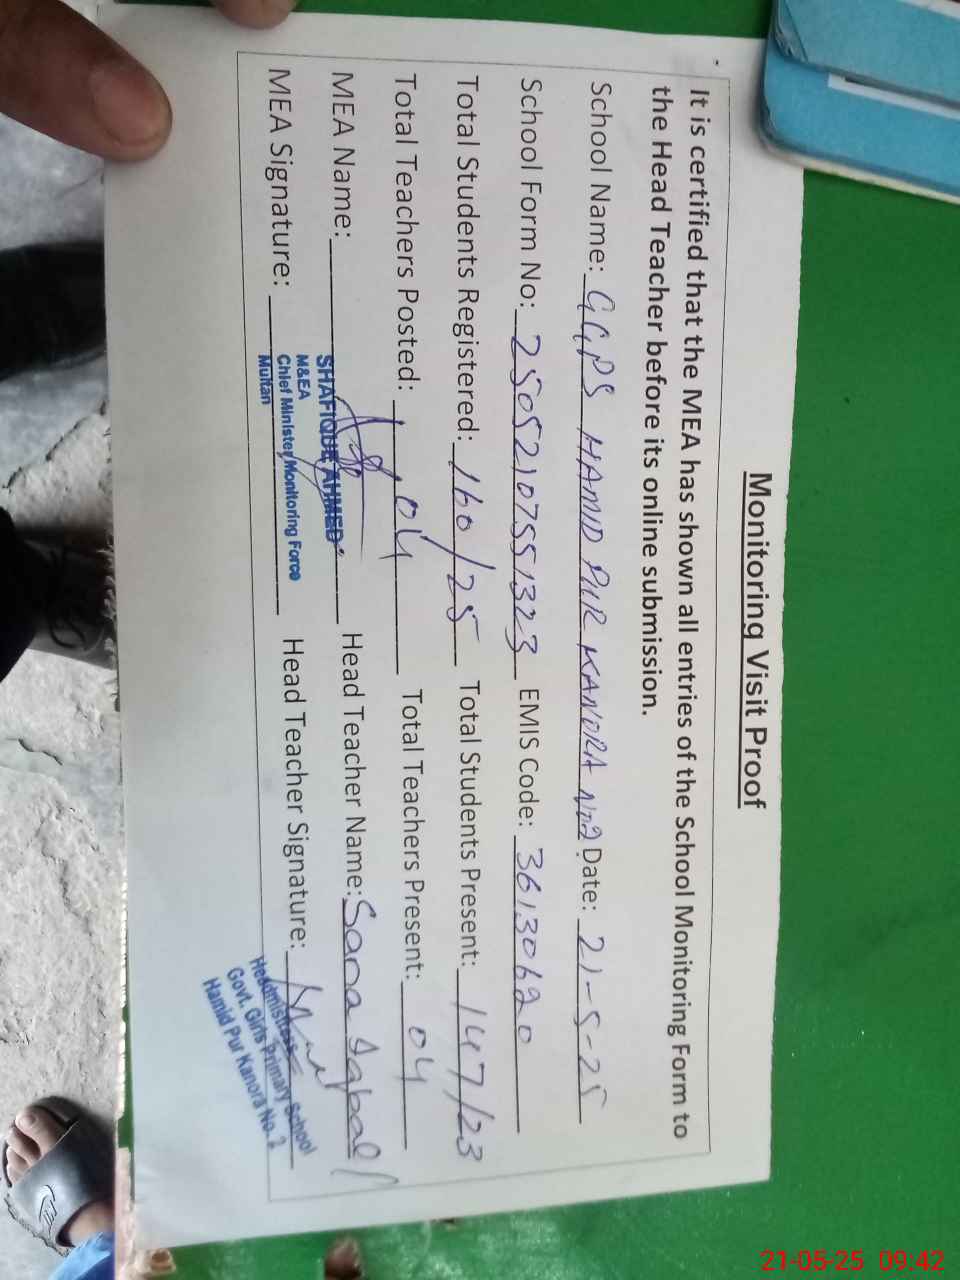 Monitoring Visit Proof
It is certified that the MEA has shown all entries of the School Monitoring Form to
the Head Teacher before its online submission.
School Name: GGPS HAMID PUR KANORA No2 Date: 21-5-25
School Form No: 25052107551323 EMIS Code: 36130620
Total Students Registered: 160/25 Total Students Present: 147/23
Total Teachers Posted: 04 Total Teachers Present: 04
MEA Name: SHAFIQUE AHMED Head Teacher Name: Sana Iqbal
M&EA
Chief Minister Monitoring Force
Multan
MEA Signature: Head Teacher Signature:
Headmistress
Govt. Girls Primary School
Hamid Pur Kanora No. 2
21-05-25 09:42